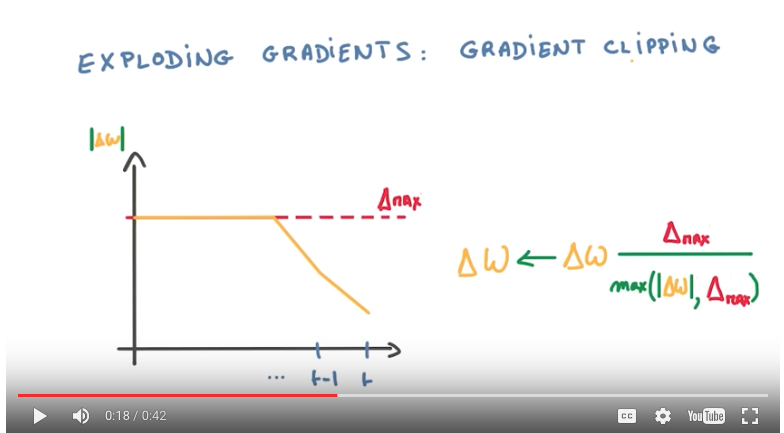 EXPLODING GRADIENTS: GRADIENT CLIPPING
|ΔW|
Δmax
ΔW ← ΔW Δmax
max(|ΔW|, Δmax)
... t-1 t
0:18 / 0:42
CC
YouTube